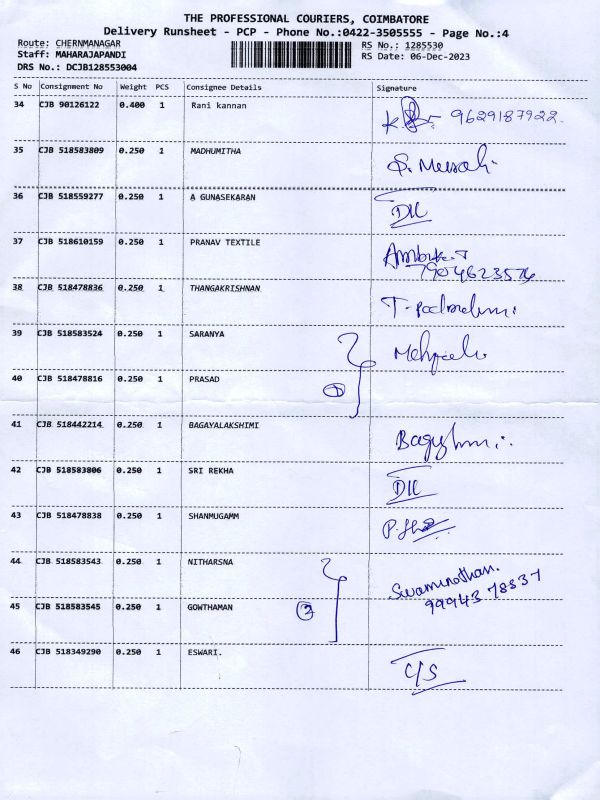 THE PROFESSIONAL COURIERS, COIMBATORE
Delivery Runsheet - PCP - Phone No.:0422-3505555 - Page No.:4
Route: CHERNMANAGAR RS No.: 1285530
Staff: MAHARAJAPANDI RS Date: 06-Dec-2023
DRS No.: DCJB128553004
S No Consignment No Weight PCS Consignee Details Signature
34 CJB 90126122 0.400 1 Rani kannan 9629187922.
35 CJB 518583809 0.250 1 MADHUMITHA
36 CJB 518559277 0.250 1 A GUNASEKARAN
37 CJB 518610159 0.250 1 PRANAV TEXTILE
38 CJB 518478836 0.250 1 THANGAKRISHNAN
39 CJB 518583524 0.250 1 SARANYA
40 CJB 518478816 0.250 1 PRASAD
41 CJB 518442214 0.250 1 BAGAYALAKSHIMI
42 CJB 518583806 0.250 1 SRI REKHA
43 CJB 518478838 0.250 1 SHANMUGAMM
44 CJB 518583543 0.250 1 NITHARSNA Swaminathan.
99943 78837
45 CJB 518583545 0.250 1 GOWTHAMAN 2
46 CJB 518349290 0.250 1 ESWARI. C/S